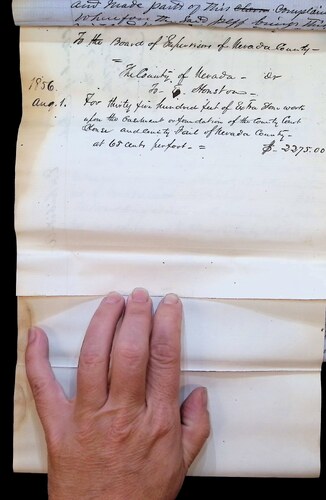 and Made parts of this claim Complain
Wherefore the said Plff being this
To the Board of Supervisors of Nevada County—
The County of Nevada – Dr
To – Houston –
1856.
Aug. 1. For thirty five hundred feet of Extra Stone work
upon the Basement or foundation of the County Court
House and County Jail of Nevada County –
at 65 cents per foot – = $ – 2275.00